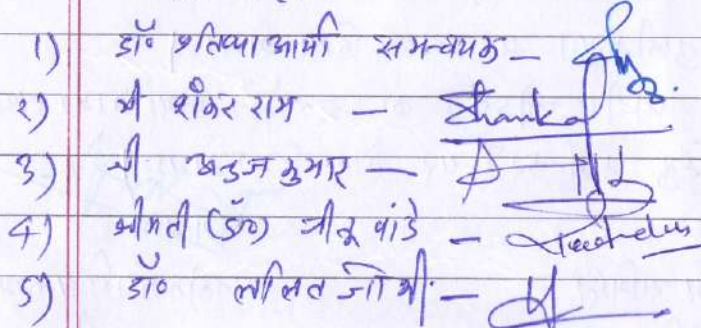 1) डॉ० प्रतिभा आर्या समन्वयक -
२) श्री शंकर राम - Shankar
३) श्री कुमार -
4) श्रीमती (डॉ०) नीतू पांडे -
5) डॉ० ललित जोशी -